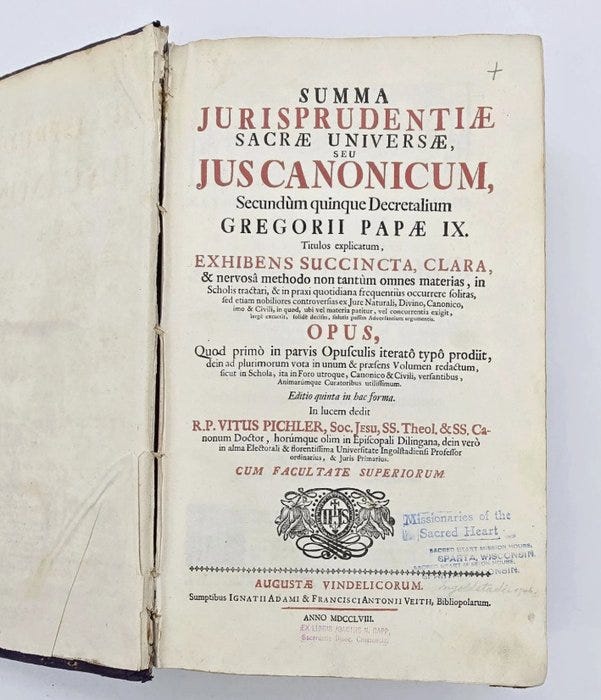 SUMMA
JURISPRUDENTIÆ
SACRÆ UNIVERSÆ,
SEU
JUS CANONICUM,
Secundùm quinque Decretalium
GREGORII PAPÆ IX.
Titulos explicatum,
EXHIBENS SUCCINCTA, CLARA,
& nervosâ methodo non tantùm omnes materias, in
Scholis tractari, & in praxi quotidiana frequentiùs occurrere solitas,
sed etiam nobiliores controversias ex Jure Naturali, Divino, Canonico,
imo & Civili, in quod, ubi vel materia patitur, vel concurrentia exigit,
solidè decisis, Adversantium argumentis.
OPUS,
Quod primò in parvis Opusculis iteratô typô prodiit,
dein ad plurimorum vota in unum & præsens Volumen redactum,
sicut in Schola, ita in Foro utroque, Canonico & Civili, versantibus,
Animarúmque Curatoribus utilissimum.
Editio quinta in hac forma.
In lucem dedit
R.P. VITUS PICHLER, Soc. JESU, SS. Theol. & SS. Ca-
nonum Doctor, horúmque olim in Episcopali Dilingana, dein verò
in alma Electorali & florentissima Universitate Ingolstadiensi Professor
ordinarius, & Juris Primarius.
CUM FACULTATE SUPERIORUM.
IHS
Missionaries of the
Sacred Heart
SACRED HEART MISSION HOUSE,
SPARTA, WISCONSIN.
AUGUSTÆ VINDELICORUM.
Sumptibus IGNATII ADAMI & FRANCISCI ANTONII VEITH, Bibliopolarum.
ANNO MDCCLVIII.
EX LIBRIS